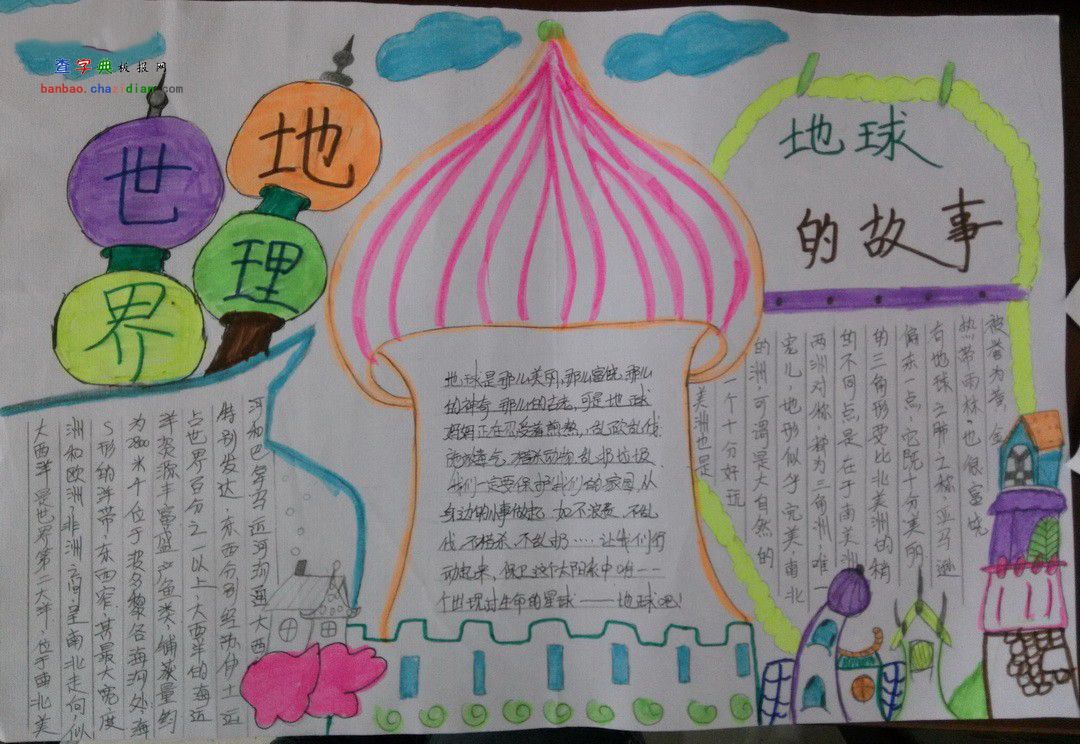 查字典板报网
banbao.chazidian.com
世界
地理
地球
的故事
地球是那么美丽,那么富饶,那么
的神奇,那么的古老,可是地球
妈妈正在忍受着煎熬,乱砍乱伐
我们一定要保护我们的家园,从
身边的小事做起,如不浪费、不乱
伐、不捕杀、不乱扔……让我们行
动起来,保卫这个太阳系中唯一一
个出现过生命的星球——地球吧!
美洲也是
一个十分好玩
的洲,可谓是大自然的
宠儿,地形似乎完美,南北
两洲对称,都为三角洲,唯一
的不同点是在于南美洲
的三角形要比北美洲的稍
偏东一点,它既十分美丽
右地球之肺之称,亚马逊
热带雨林,也很富饶
被誉为黄金
大西洋是世界第二大洋,位于南北美
洲和欧洲、非洲之间,呈南北走向,似
S形的洋带,东西窄,其最大宽度
为2800米
洋资源丰富,盛产鱼类,捕获量约
占世界百分之一以上,大西洋的海运
特别发达,东西分别经苏伊士运
河和巴拿马运河沟通大西